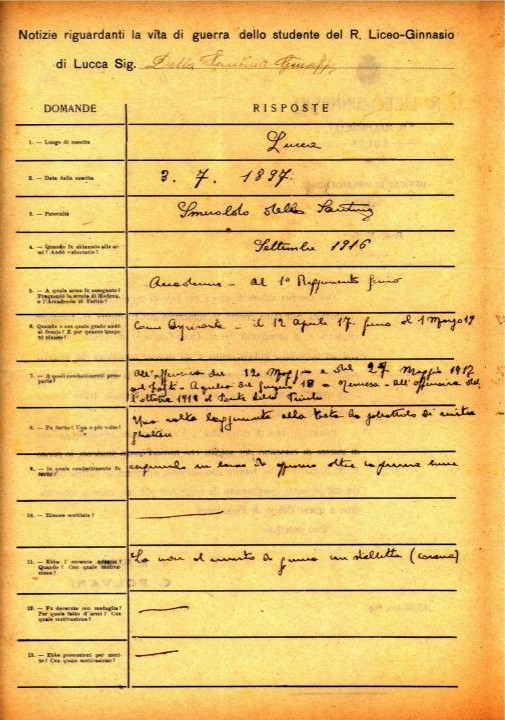 Notizie riguardanti la vita di guerra dello studente del R. Liceo-Ginnasio
di Lucca Sig. Della Santina
DOMANDE
RISPOSTE
1. - Luogo di nascita
Lucca
2. - Data della nascita
3. 7. 1897.
3. - Paternità
Smeraldo della Santina
4. - Quando fu chiamato alle armi? Andò volontario?
Settembre 1916
5. - A quale arma fu assegnato?
Frequentò la scuola di Modena,
o l'Accademia di Torino?
Accademia - al 1º Reggimento genio
6. Quando e con quale grado andò
al fronte? E per quanto tempo
vi rimase?
Come Aspirante - il 12 Aprile 17. fino al 1 Marzo 19
7. - A quali combattimenti partecipò?
All'offensiva del 12 Maggio e del 24 Maggio 1917
del giugno 18 - all'offensiva dell'
ottobre 1918
8. - Fu ferito? Una o più volte?
Una volta leggermente alla testa da
9. - In quale combattimento fu
ferito?
oltre la prima linea
10. - Rimase mutilato?
11. - Ebbe l'encomio solenne?
Quando? Con quale motivazione?
La croce al merito di guerra (corona)
12. - Fu decorato con medaglia?
Per quale fatto d'armi? Con
quale motivazione?
13. - Ebbe promozioni per merito? Con quale motivazione?